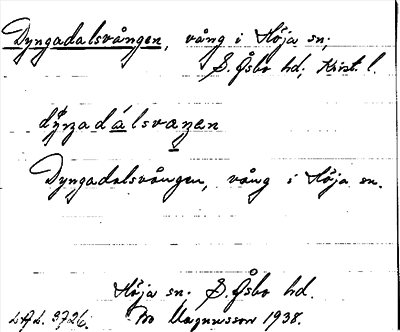 Dyngadalsvången, vång i Höja sn;
S. Åsbo hd; Krist. l.
dyŋadálsvaŋen
Dyngadalsvången, vång i Höja sn.
Höja sn. S. Åsbo hd.
LAL. 3726. Bo Magnusson 1938.